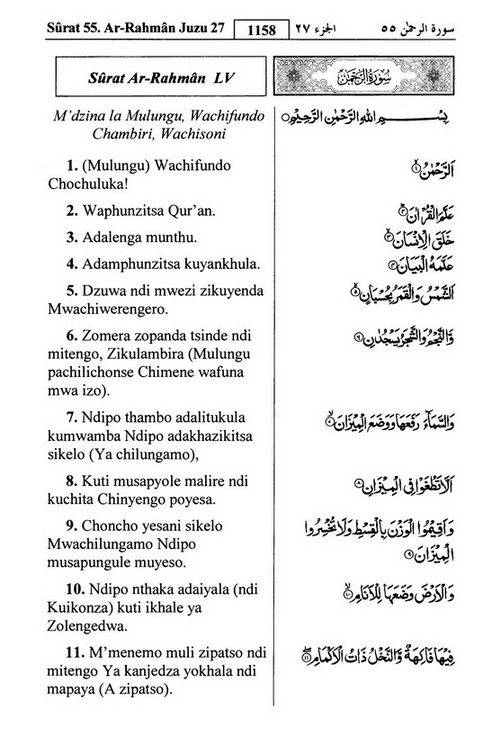 Sûrat 55. Ar-Rahmân Juzu 27
1158
الجزء ٢٧
سورة الرحمٰن ٥٥
Sûrat Ar-Rahmân LV
سُورَةُ الرَّحْمٰنِ
M’dzina la Mulungu, Wachifundo
Chambiri, Wachisoni
بِسْمِ اللهِ الرَّحْمٰنِ الرَّحِيْمِ
1. (Mulungu) Wachifundo
Chochuluka!
اَلرَّحْمٰنُ ۙ١
2. Waphunzitsa Qur’an.
عَلَّمَ الْقُرْاٰنَ ۗ٢
3. Adalenga munthu.
خَلَقَ الْاِنْسَانَ ۙ٣
4. Adamphunzitsa kuyankhula.
عَلَّمَهُ الْبَيَانَ ٤
5. Dzuwa ndi mwezi zikuyenda
Mwachiwerengero.
اَلشَّمْسُ وَالْقَمَرُ بِحُسْبَانٍ ٥
6. Zomera zopanda tsinde ndi
mitengo, Zikulambira (Mulungu
pachilichonse Chimene wafuna
mwa izo).
وَّالنَّجْمُ وَالشَّجَرُ يَسْجُدٰنِ ٦
7. Ndipo thambo adalitukula
kumwamba Ndipo adakhazikitsa
sikelo (Ya chilungamo),
وَالسَّمَآءَ رَفَعَهَا وَوَضَعَ الْمِيْزَانَ ۙ٧
8. Kuti musapyole malire ndi
kuchita Chinyengo poyesa.
اَلَّا تَطْغَوْا فِى الْمِيْزَانِ ٨
9. Choncho yesani sikelo
Mwachilungamo Ndipo
musapungule muyeso.
وَاَقِيْمُوا الْوَزْنَ بِالْقِسْطِ وَلَا تُخْسِرُوا
الْمِيْزَانَ ٩
10. Ndipo nthaka adaiyala (ndi
Kuikonza) kuti ikhale ya
Zolengedwa.
وَالْاَرْضَ وَضَعَهَا لِلْاَنَامِ ۙ١٠
11. M’menemo muli zipatso ndi
mitengo Ya kanjedza yokhala ndi
mapaya (A zipatso).
فِيْهَا فَاكِهَةٌ وَّالنَّخْلُ ذَاتُ الْاَكْمَامِ ۖ١١